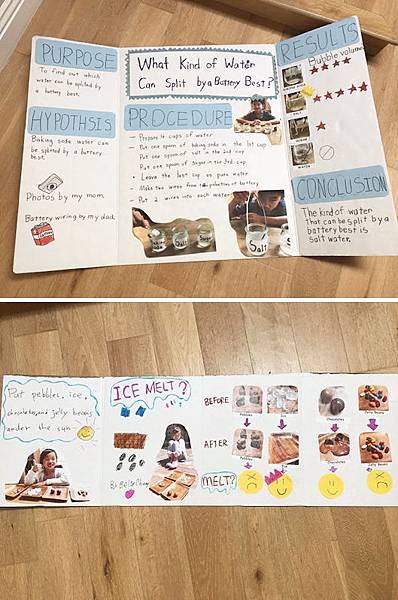 PURPOSE
To find out which
water can be splited by
a battery best.
HYPOTHSIS
Baking soda water can
be splited by a battery
best.
Photos by my mom.
Battery wiring by my dad.
What Kind of Water
Can Split by a Battery Best?
PROCEDURE
- Prepare 4 cups of water
- Put one spoon of baking soda in the 1st cup
- Put one spoon of salt in the 2nd cup
- Put one spoon of sugar in the 3rd cup
- Leave the last cup as pure water
- Make two wires from the battery
- Put 2 wires into each water
Salt
Salt
RESULTS
Bubble volume
CONCLUSION
The kind of water
that can be split by a
battery best is
salt water.
Put pebbles, ice,
chocolates, and jelly beans
under the sun
ICE MELT?
BEFORE
Pebbles
Ice
Chocolates
Jelly Beans
AFTER
Pebbles
Chocolates
Jelly Beans
MELT?